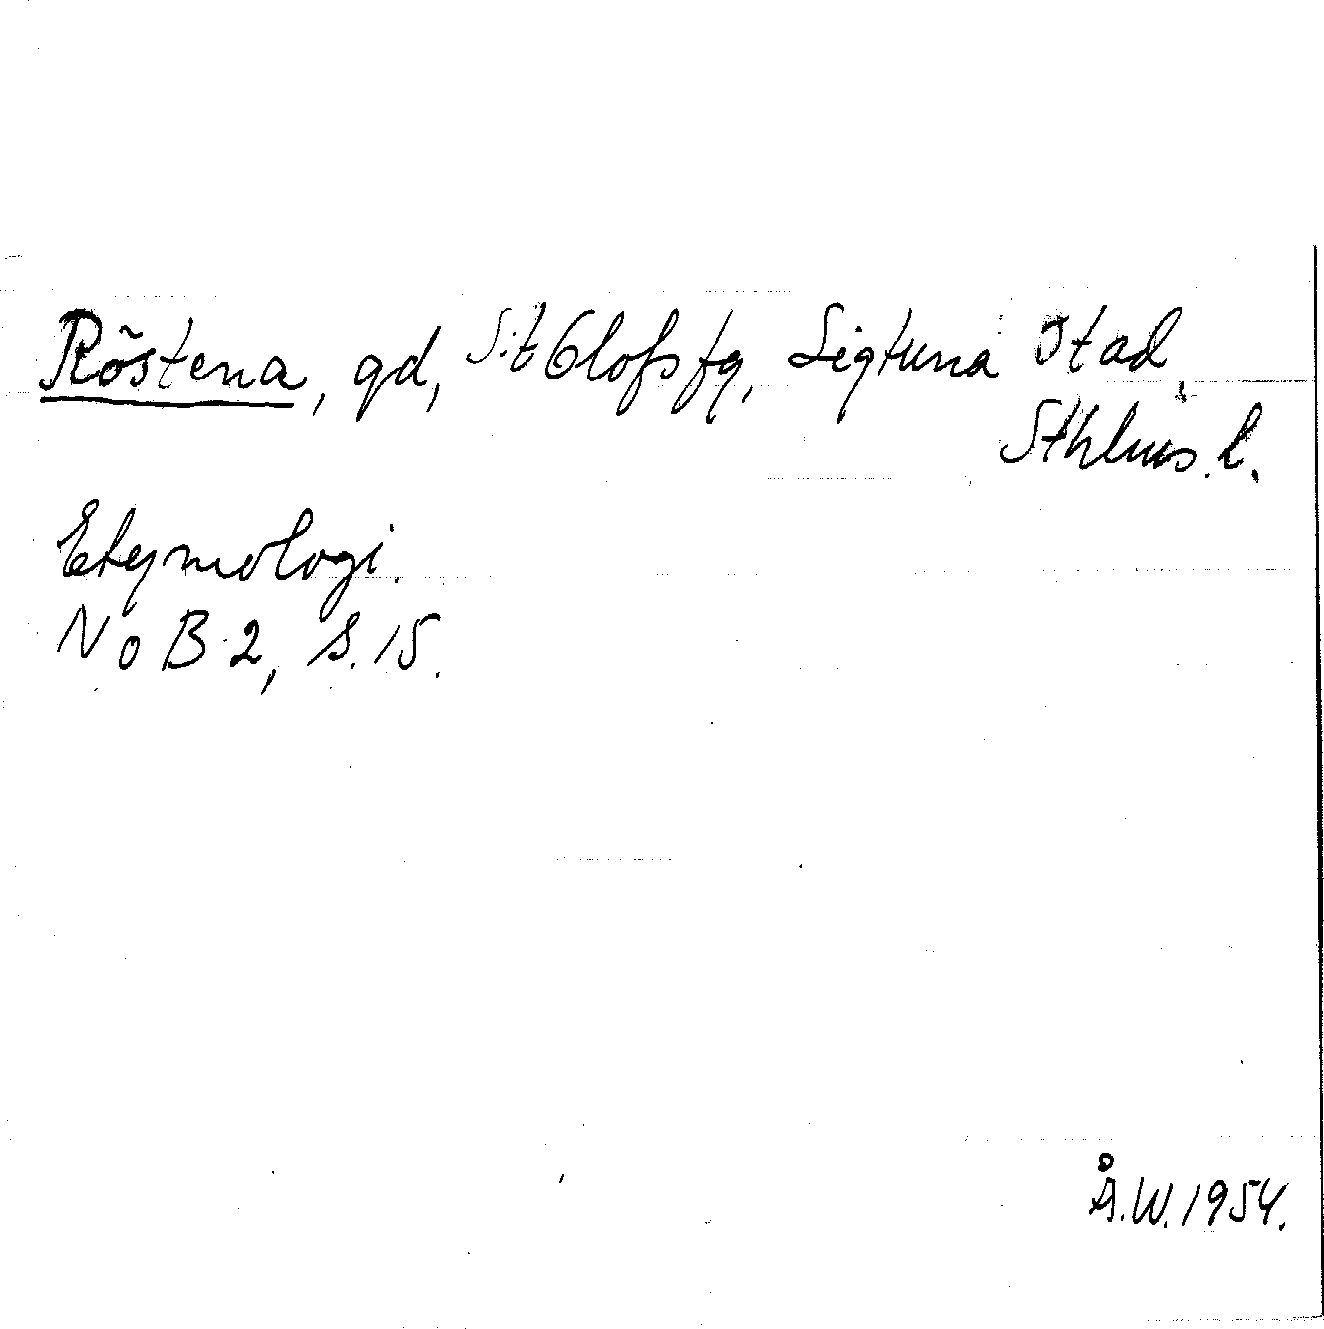 Röstena, gd, S:t Olofs fg, Sigtuna stad,
Sthlms l.
Etymologi.
NoB 2, s. 15.
Å.W. 1954.